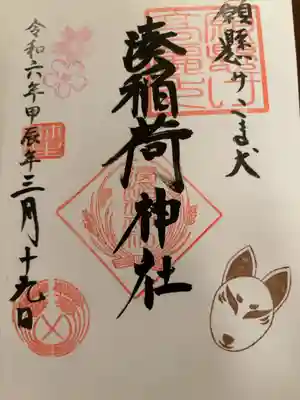 願懸けこま犬
湊稲荷神社
令和六年甲辰年三月十九日